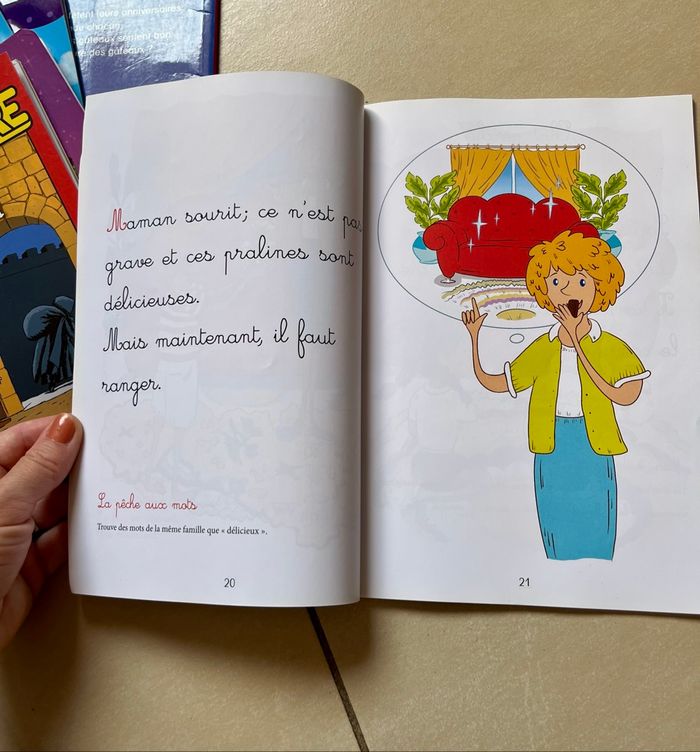 leurs anniversaires,
chacun,
gâteaux sentent bon
des gâteaux ?
RE
Maman sourit; ce n'est pas
grave et ces pralines sont
délicieuses.
Mais maintenant, il faut
ranger.
La pêche aux mots
Trouve des mots de la même famille que « délicieux ».
20
21